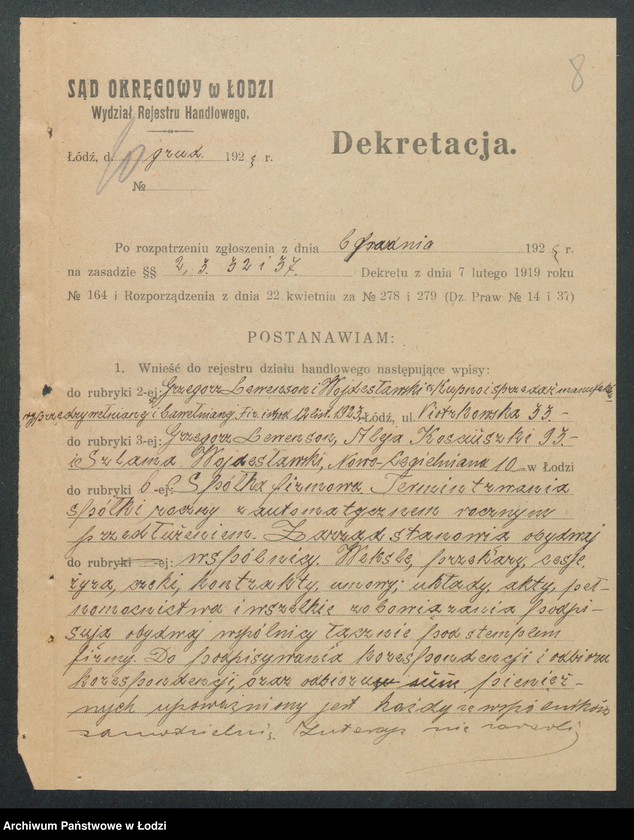 8
SĄD OKRĘGOWY w ŁODZI
Wydział Rejestru Handlowego.
Dekretacja.
Łódź, d. 10 grud. 1923 r.
№
Po rozpatrzeniu zgłoszenia z dnia 6 grudnia 192 r.
na zasadzie §§ 2, 3. 32 i 37. Dekretu z dnia 7 lutego 1919 roku
№ 164 i Rozporządzenia z dnia 22 kwietnia za № 278 i 279 (Dz. Praw № 14 i 37)
POSTANAWIAM:
1. Wnieść do rejestru działu handlowego następujące wpisy:
do rubryki 2-ej: Grzegorz Lewenson i Wojdesławski Kupno i sprzedaż manufakt.
wełnianej i bawełnianej. Fir. istn. od 12 list. 1923. Łódź, ul. Piotrkowska 33-
do rubryki 3-ej: Grzegorz Lewenson, Aleja Kosciuszki 93.-
i Szlama Wojdesławski, Nowo-Cegielniana 10 w Łodzi
do rubryki 6-ej: Spółka firmowa. Termin trwania
spółki roczny z automatycznem rocznym
przedłużeniem. Zarząd stanowią obydwaj
do rubryki -ej: wspólnicy. Weksle, przekazy, cesje,
żyra, czeki, kontrakty, umowy, układy, akty, peł-
nomocnictwa i wszelkie zobowiązania podpi-
sują obydwaj wspólnicy łącznie pod stemplem
firmy. Do podpisywania korespondencji i odbioru
korespondencji, oraz odbioru sum pienięż-
nych upoważniony jest każdy ze wspólników
samodzielnie. Intercyz nie zawarli
Archiwum Państwowe w Łodzi